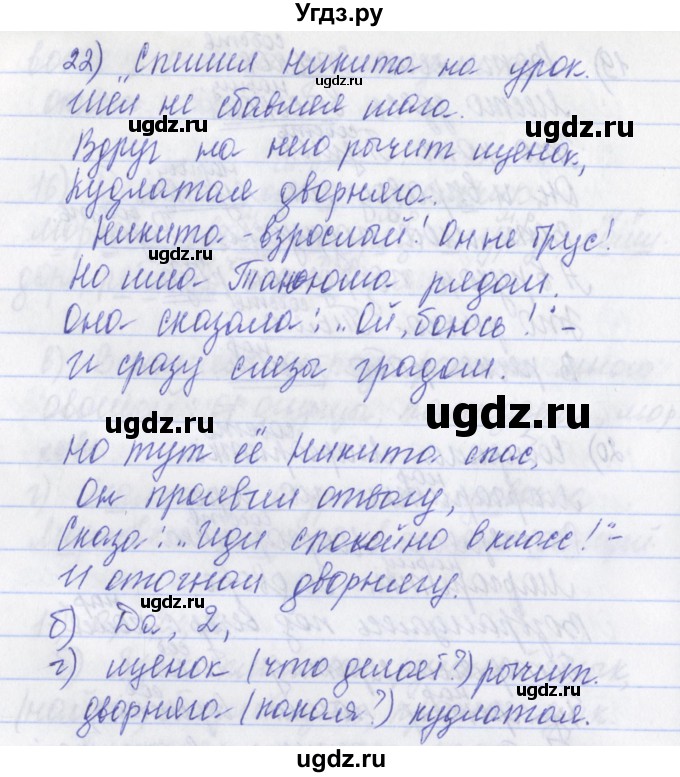 Угдз.ру
22) Спишил Никита на урок.
Шёл не сбавляя шага.
ugdz.ru ugdz.ru
Вдруг на него рычит щенок,
Кудлатая дворняга.
ugdz.ru
Никита - взрослый! Он не трус!
Но шла Танюша рядом.
ugdz.ru
Она сказала: „Ой, боюсь!" -
И сразу слёзы градом.
ugdz.ru
ugdz.ru
Но тут её Никита спас,
Он проявил отвагу,
ugdz.ru
Сказа: „Иди спокойно в класс!" -
И отогнал дворнягу.
ugdz.ru
б) Да, 2,
г) щенок (что делает?) рычит.
ugdz.ru
дворняга (какая?) кудлатая.
ugdz.ru